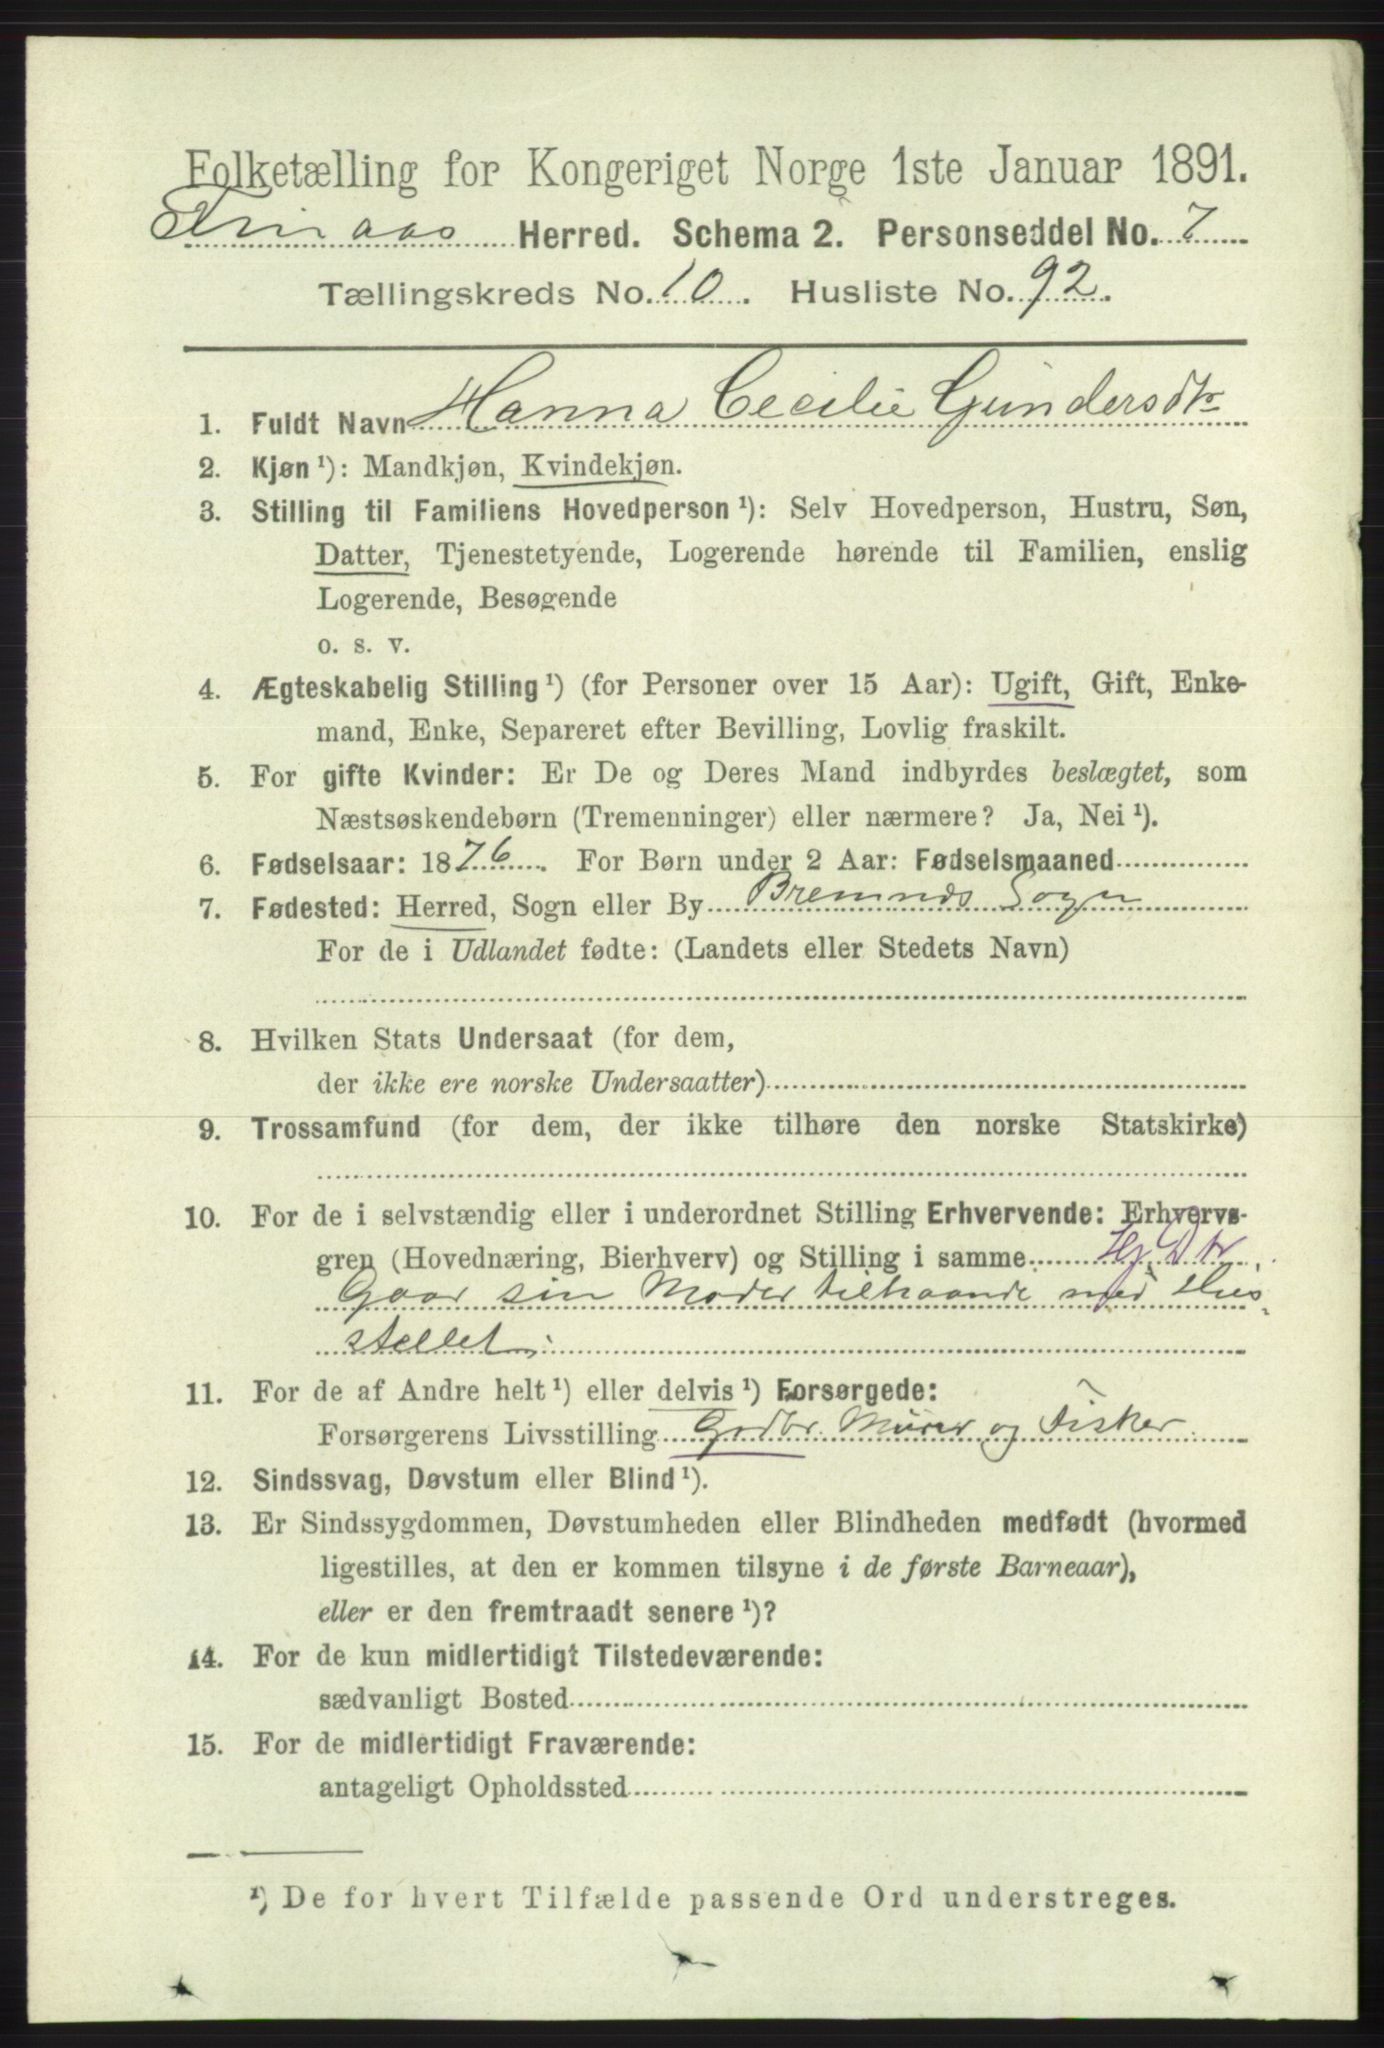 Folketælling for Kongeriget Norge 1ste Januar 1891.
Finaas Herred. Schema 2. Personseddel No. 7
Tællingskreds No. 10. Husliste No. 92.
1. Fuldt Navn Hanna Cecilie Gundersdtr
2. Kjøn ¹): Mandkjøn, Kvindekjøn.
3. Stilling til Familiens Hovedperson ¹): Selv Hovedperson, Hustru, Søn,
Datter, Tjenestetyende, Logerende hørende til Familien, enslig
Logerende, Besøgende
o. s. v.
4. Ægteskabelig Stilling ¹) (for Personer over 15 Aar): Ugift, Gift, Enke-
mand, Enke, Separeret efter Bevilling, Lovlig fraskilt.
5. For gifte Kvinder: Er De og Deres Mand indbyrdes beslægtet, som
Næstsøskendebørn (Tremenninger) eller nærmere? Ja, Nei ¹).
6. Fødselsaar: 1876. For Børn under 2 Aar: Fødselsmaaned
7. Fødested: Herred, Sogn eller By Bremnds Sogn
For de i Udlandet fødte: (Landets eller Stedets Navn)
8. Hvilken Stats Undersaat (for dem,
der ikke ere norske Undersaatter)
9. Trossamfund (for dem, der ikke tilhøre den norske Statskirke)
10. For de i selvstændig eller i underordnet Stilling Erhvervende: Erhvervs-
gren (Hovednæring, Bierhverv) og Stilling i samme Hj. Dtr.
Gaar sin Moder tilhaande med Hus-
stellet;
11. For de af Andre helt ¹) eller delvis ¹) Forsørgede:
Forsørgerens Livsstilling Grdbr. Murer og Fisker
12. Sindssvag, Døvstum eller Blind ¹).
13. Er Sindssygdommen, Døvstumheden eller Blindheden medfødt (hvormed
ligestilles, at den er kommen tilsyne i de første Barneaar),
eller er den fremtraadt senere ¹)?
14. For de kun midlertidigt Tilstedeværende:
sædvanligt Bosted
15. For de midlertidigt Fraværende:
antageligt Opholdssted
¹) De for hvert Tilfælde passende Ord understreges.